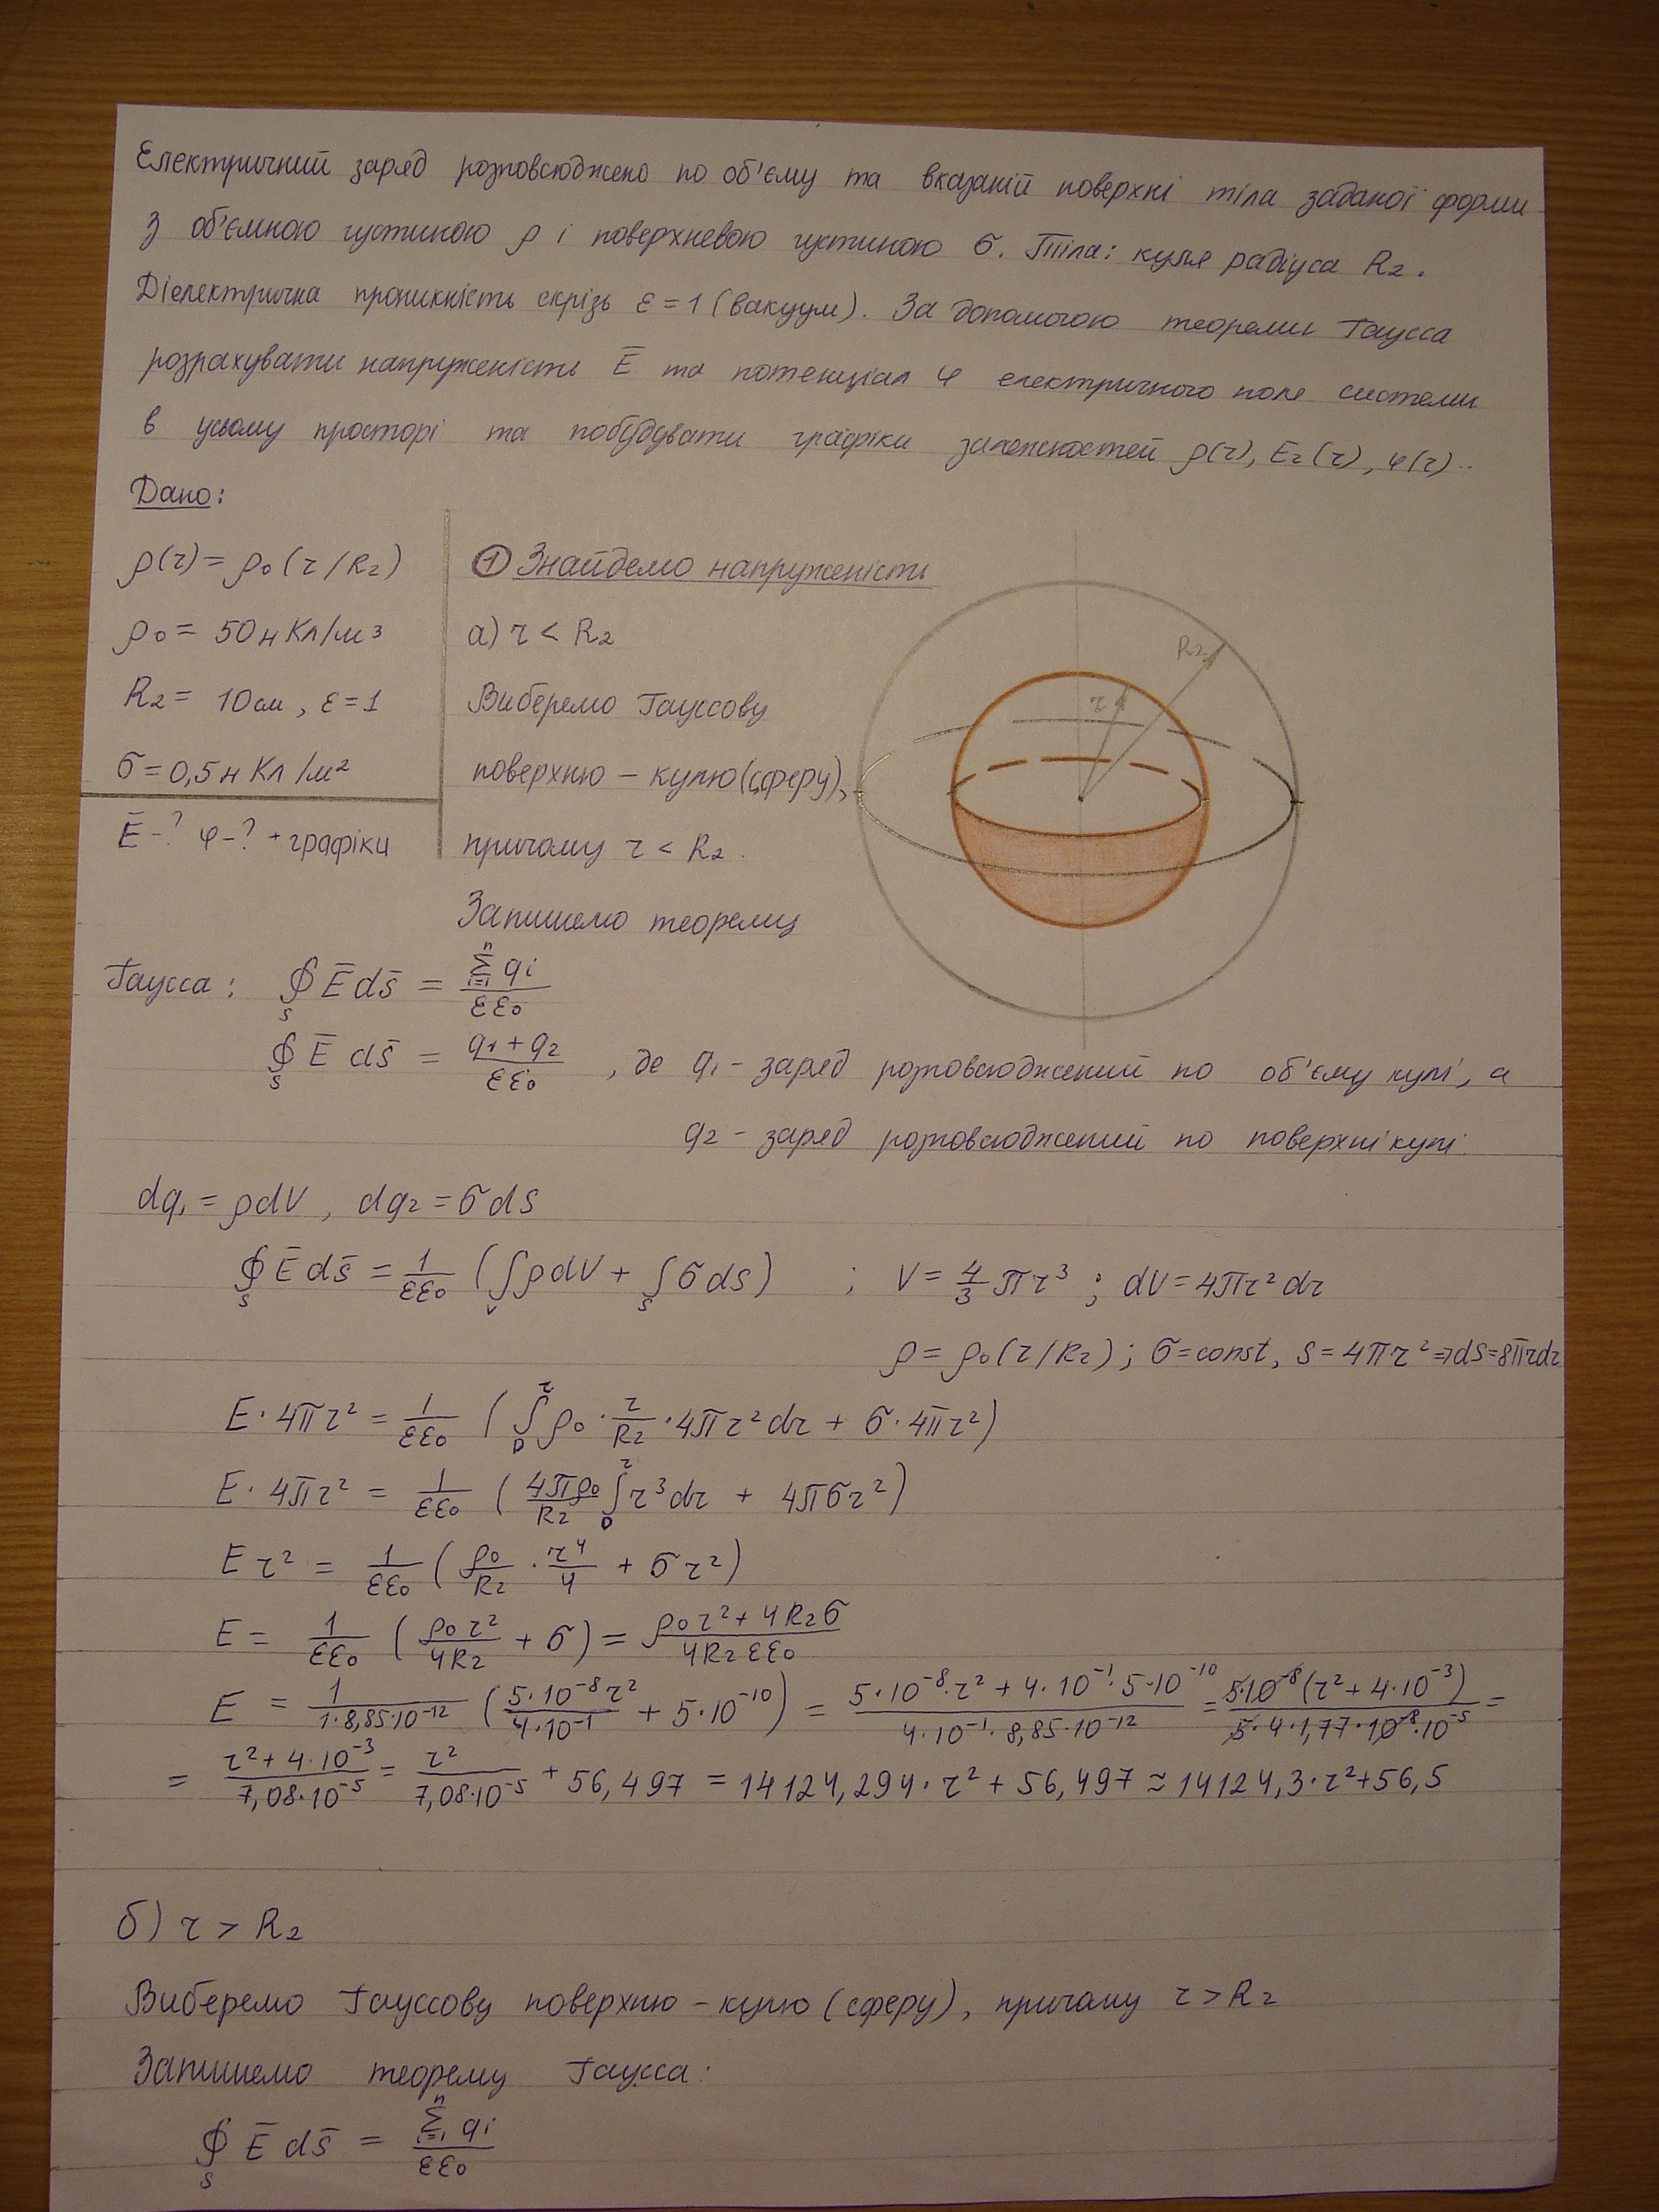 Електричний заряд розповсюджено по об'єму та вказаній поверхні тіла заданої форми
з об'ємною густиною ρ і поверхневою густиною σ. Тіла: куля радіуса R₂.
Діелектрична проникність скрізь ε = 1 (вакуум). За допомогою теореми Гаусса
розрахувати напруженість E̅ та потенціал φ електричного поле системи
в усьому просторі та побудувати графіки залежностей ρ(r), E₂(r), φ(r)..
Дано:
ρ(r) = ρ₀(r/R₂)
ρ₀ = 50 нКл/м³
R₂ = 10 см, ε = 1
σ = 0,5 нКл/м²
E̅ - ? φ - ? + графіки
① Знайдемо напруженість
а) r < R₂
Виберемо Гауссову
поверхню – кулю (сферу),
причому r < R₂.
Запишемо теорему
R₂
r
Гаусса: ∮_S E̅ ds̅ = (Σ_{i=1}^{n} qᵢ)/(εε₀)
∮_S E̅ ds̅ = (q₁ + q₂)/(εε₀), де q₁ - заряд розповсюджений по об'єму кулі, а
q₂ - заряд розповсюджений по поверхні кулі.
dq₁ = ρdV, dq₂ = σdS
∮_S E̅ ds̅ = 1/(εε₀) (∫_V ρdV + ∫_S σds) ; V = 4/3 πr³; dV = 4πr²dr
ρ = ρ₀(r/R₂); σ = const, S = 4πr² ⇒ dS = 8πrdr
E·4πr² = 1/(εε₀) (∫₀^r ρ₀ · r/R₂ · 4πr²dr + σ·4πr²)
E·4πr² = 1/(εε₀) (4πρ₀/R₂ ∫₀^r r³dr + 4πσr²)
Er² = 1/(εε₀) (ρ₀/R₂ · r⁴/4 + σr²)
E = 1/(εε₀) (ρ₀r²/4R₂ + σ) = (ρ₀r² + 4R₂σ)/(4R₂εε₀)
E = 1/(1·8,85·10⁻¹²) (5·10⁻⁸r²/(4·10⁻¹) + 5·10⁻¹⁰) = (5·10⁻⁸·r² + 4·10⁻¹·5·10⁻¹⁰)/(4·10⁻¹·8,85·10⁻¹²) = 5·10⁻⁸(r² + 4·10⁻³)/(5·4·1,77·10⁻⁸·10⁻⁵) =
= (r² + 4·10⁻³)/(7,08·10⁻⁵) = r²/(7,08·10⁻⁵) + 56,497 = 14124,294·r² + 56,497 ≈ 14124,3·r² + 56,5
б) r > R₂
Виберемо Гауссову поверхню – кулю (сферу), причому r > R₂
Запишемо теорему Гаусса:
∮_S E̅ ds̅ = (Σ_{i=1}^{n} qᵢ)/(εε₀)